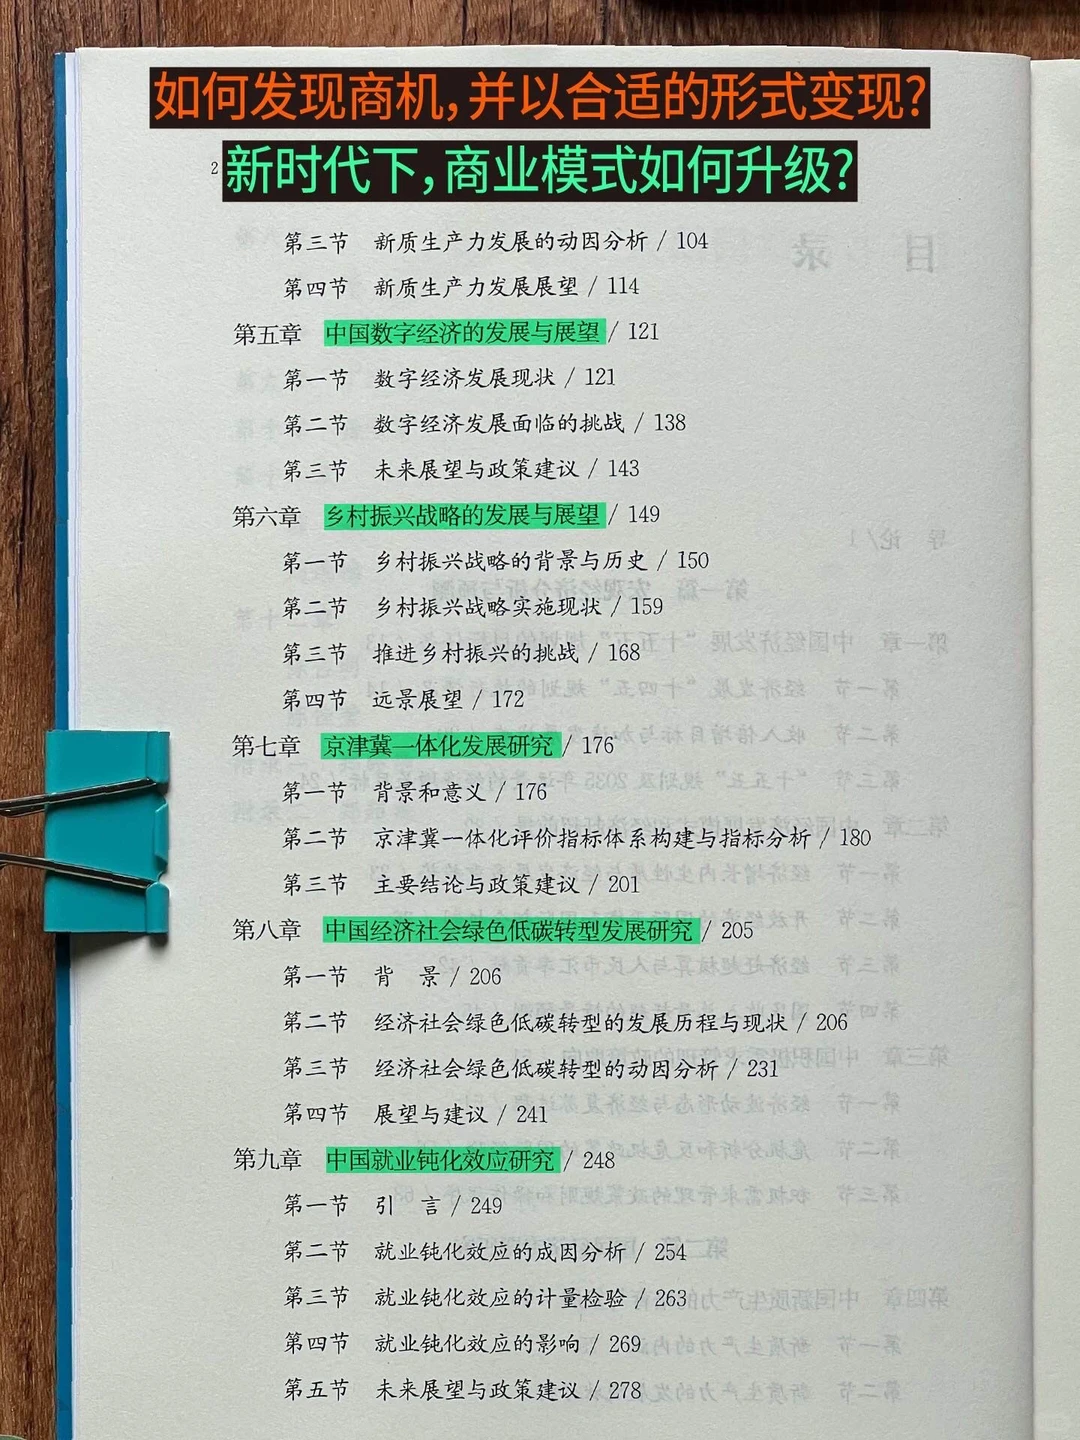 如何发现商机，并以合适的形式变现?
新时代下，商业模式如何升级?
2
第三节 新质生产力发展的动因分析 / 104
第四节 新质生产力发展展望 / 114
第五章 中国数字经济的发展与展望 / 121
第一节 数字经济发展现状 / 121
第二节 数字经济发展面临的挑战 / 138
第三节 未来展望与政策建议 / 143
第六章 乡村振兴战略的发展与展望 / 149
第一节 乡村振兴战略的背景与历史 / 150
第二节 乡村振兴战略实施现状 / 159
第三节 推进乡村振兴的挑战 / 168
第四节 远景展望 / 172
第七章 京津冀一体化发展研究 / 176
第一节 背景和意义 / 176
第二节 京津冀一体化评价指标体系构建与指标分析 / 180
第三节 主要结论与政策建议 / 201
第八章 中国经济社会绿色低碳转型发展研究 / 205
第一节 背 景 / 206
第二节 经济社会绿色低碳转型的发展历程与现状 / 206
第三节 经济社会绿色低碳转型的动因分析 / 231
第四节 展望与建议 / 241
第九章 中国就业钝化效应研究 / 248
第一节 引 言 / 249
第二节 就业钝化效应的成因分析 / 254
第三节 就业钝化效应的计量检验 / 263
第四节 就业钝化效应的影响 / 269
第五节 未来展望与政策建议 / 278